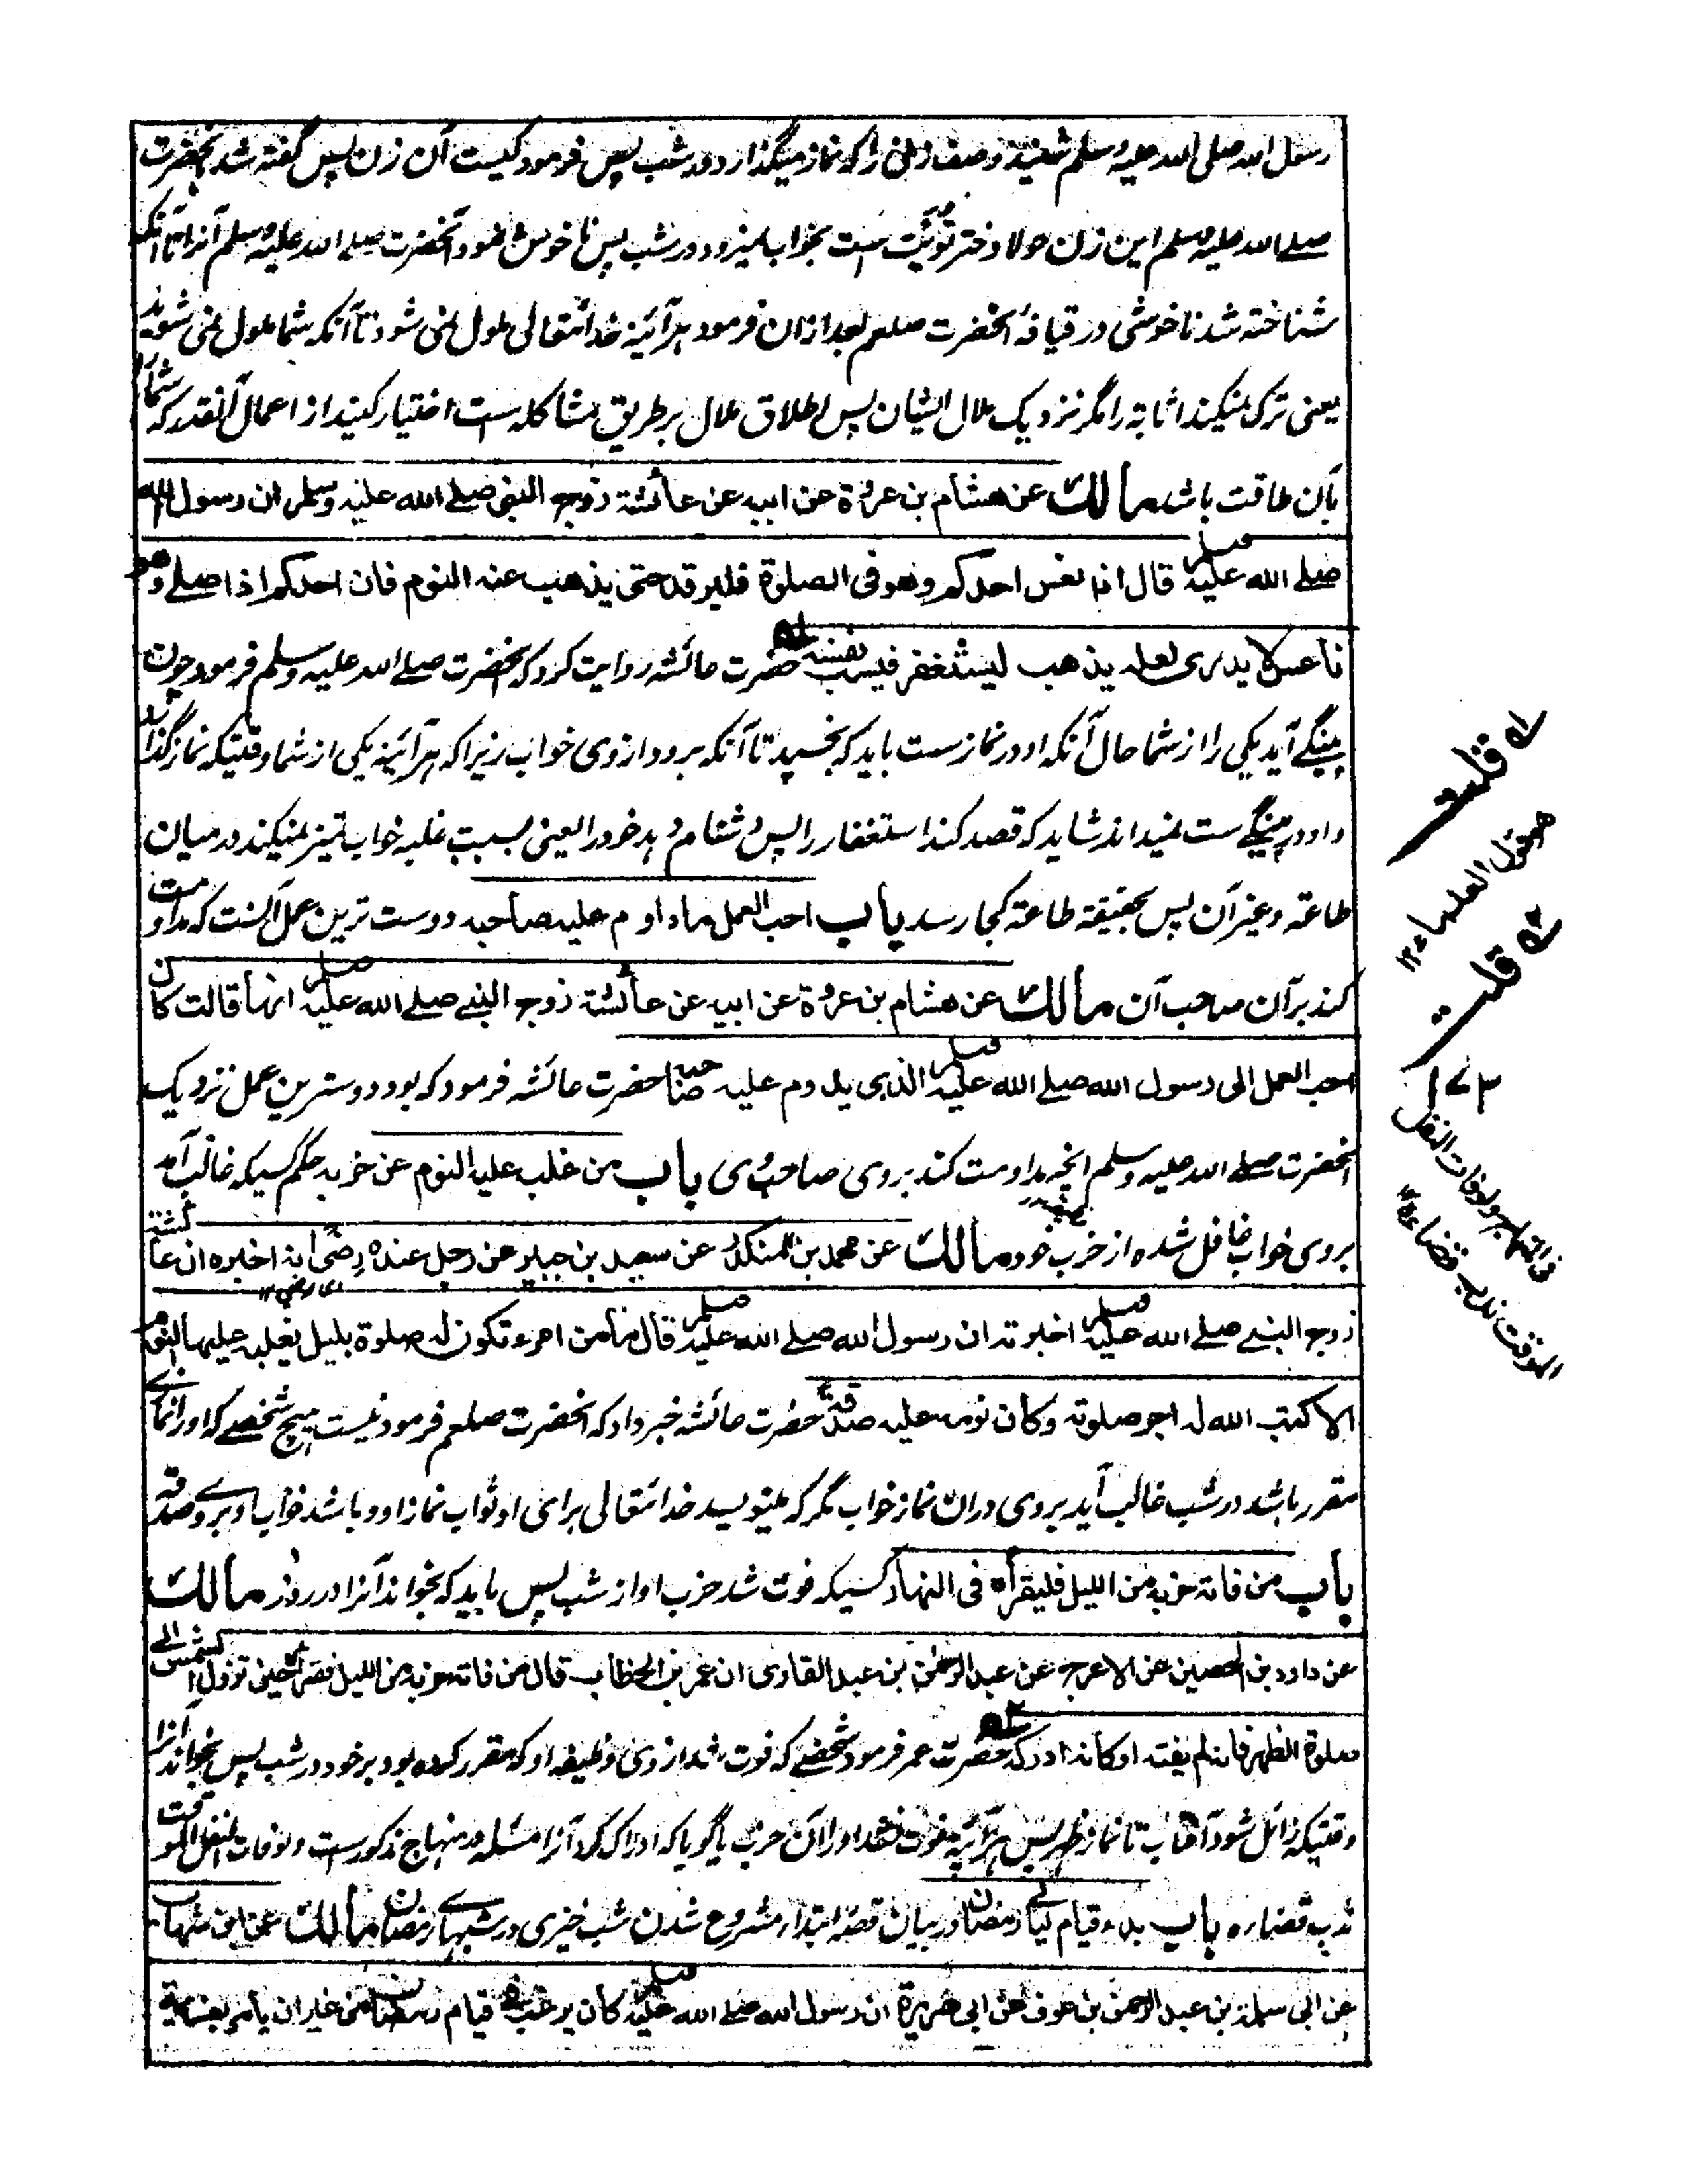 رسول الله صلی الله علیه وسلم شنید وصف زنی را که نماز میگذارد در شب پس فرمود کیست آن زن پس گفته شد بحضرت
صلے الله علیه وسلم این زن حولا دختر تویت ست بخواب نمیرود در شب پس ناخوش نمود آنحضرت صلے الله علیه وسلم آنرا تا آنکه
شناخته شد ناخوشی در قیافهٔ آنحضرت صلعم بعد ازان فرمود هر آئینه خدائتعالی ملول نمی شود تا آنکه شما ملول نمی شوید
یعنی ترک نمیکند اثابه را مگر نزدیک ملال ایشان پس اطلاق ملال بر طریق مشاکله ست اختیار کنید از اعمال آنقدر که شما را
بآن طاقت باشد مالك عن هشام بن عروة عن ابيه عن عائشة زوج النبی صلے الله عليه وسلم ان رسول الله
صلے الله عليه وسلم قال اذا نعس احدكم وهو فى الصلوة فليرقد حتى يذهب عنه النوم فان احدكم اذا صلے وهو
ناعس لا يدرى لعله يذهب ليستغفر فيسب نفسه حضرت عائشه روایت کرد که آنحضرت صلے الله علیه وسلم فرمود چون
پینگے آید یکی را از شما حال آنکه او در نماز ست باید که بخسپد تا آنکه برود از وی خواب زیرا که هر آئینه یکی از شما وقتیکه نماز گذارد
و او در پینگے ست نمیداند شاید که قصد کند استغفار را پس دشنام دهد خود را یعنی بسبب غلبه خواب تمیز نمیکند در میان
طاعة و غیر آن پس بحقیقة طاعة کجا رسد باب احب العمل ما داوم عليه صاحبه دوست ترین عمل آنست که مداومت
کند بر آن صاحب آن مالك عن هشام بن عروة عن ابيه عن عائشة زوج النبے صلے الله عليه وسلم انها قالت كان
احب العمل الى رسول الله صلے الله عليه وسلم الذى يدوم عليه صاحبه حضرت عائشه فرمود که بود دوسترین عمل نزدیک
آنحضرت صلے الله علیه وسلم آنچه مداومت کند بروی صاحب وی باب من غلب عليه النوم عن حزبه حکم کسیکه غالب آمد
بروی خواب غافل شده از حزب خود مالك عن محمد بن المنكدر عن سعيد بن جبير عن رجل عنده رضى انه اخبره ان عائشة
زوج النبے صلے الله عليه وسلم اخبرته ان رسول الله صلے الله عليه وسلم قال ما من امرء تكون له صلوة بليل يغلبه عليها النوم
الا كتب الله له اجر صلوته وكان نومه عليه صدقة حضرت عائشه خبر داد که آنحضرت صلعم فرمود نیست هیچ شخصے که او را نمازے
مقرر باشد در شب غالب آید بروی دران نماز خواب مگر که بنویسد خدائتعالی برای او ثواب نماز او و باشد خواب او بروے صدقه
باب من فاته حزبه من الليل فليقرأه فى النهار کسیکه فوت شد حزب او از شب پس باید که بخواند آنرا در روز مالك
عن داود بن الحصين عن الاعرج عن عبد الرحمن بن عبد القارى ان عمر بن الخطاب قال من فاته حزبه من الليل فقرأه حين تزول الشمس الے
صلوة الظهر فانه لم يفته او كانه ادركه حضرت عمر فرمود شخصے که فوت شد از وی وظیفه او که مقرر کرده بود بر خود در شب پس بخواند آنرا
وقتیکه زائل شود آفتاب تا نماز ظهر پس هر آئینه فوت نشد او را آن حزب یا گویا که ادراک کرد آنرا مسئله در منهاج مذکور ست ولو فات النفل الموقت
ندب قضاءه باب بدء قيام ليالے رمضان در بیان قصهٔ ابتدار مشروع شدن شب خیزی در شبهاے رمضان مالك عن ابن شهاب
عن ابى سلمة بن عبد الرحمن بن عوف عن ابى هريرة ان رسول الله صلے الله عليه وسلم كان يرغب فى قيام رمضان من غير ان يأمر بعزيمة
له قلت
العلماء ١٢
٢ه قلت
١٧٣
ولو فات النفل
الموقت ندب قضاءه